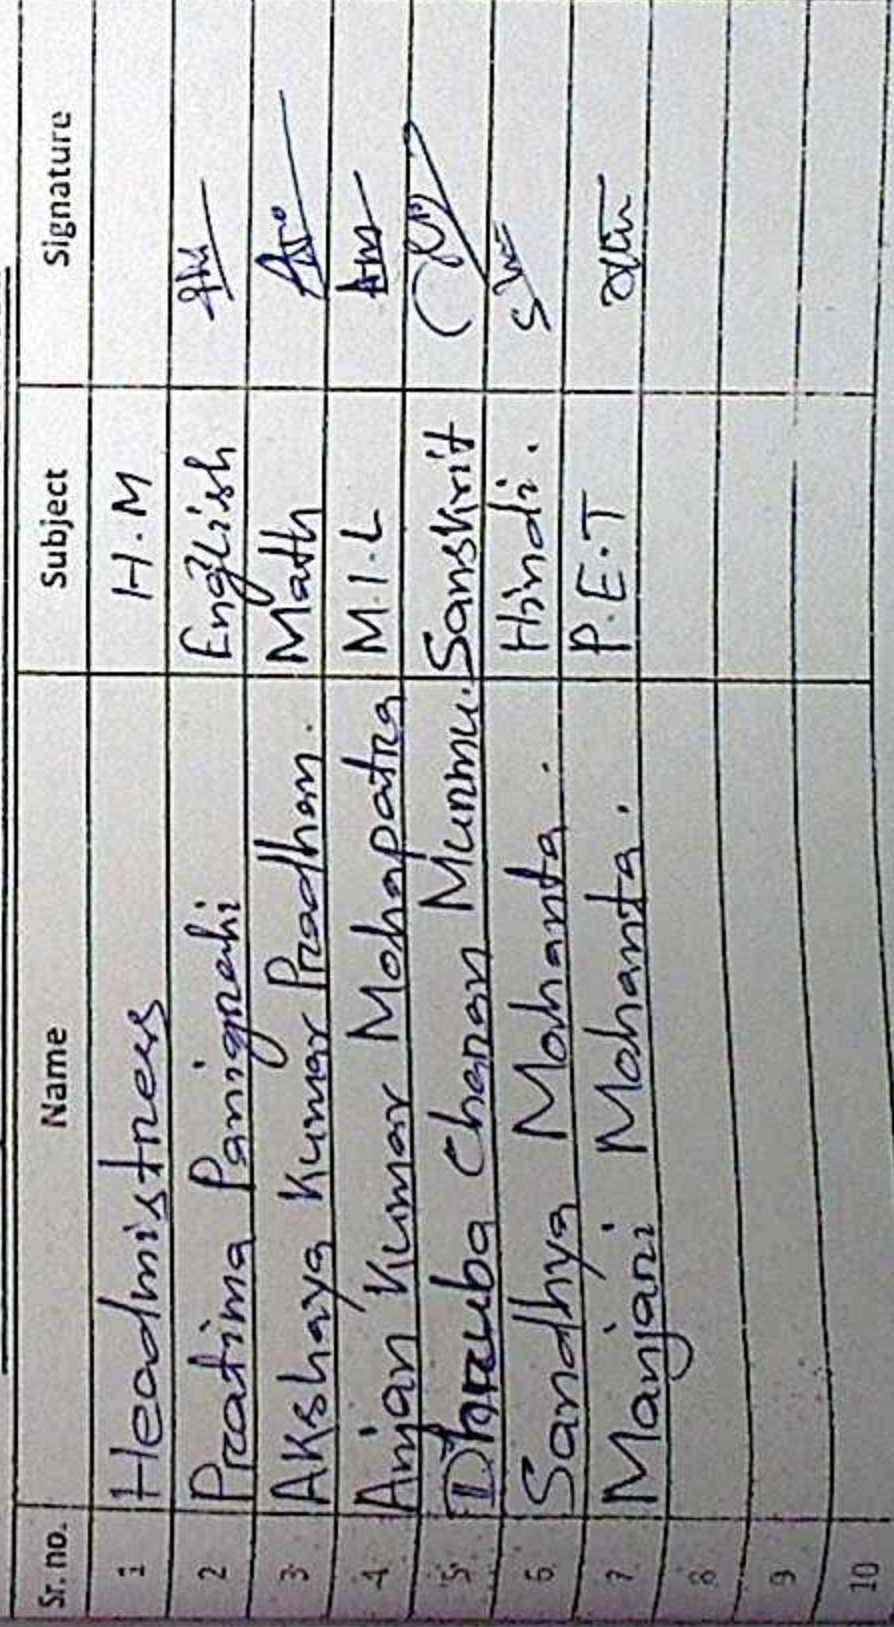 Sr. no. Name Subject Signature
1 Headmistress H.M
2 Pratima Panigrahi English
3 Akshaya Kumar Pradhan. Math
4 Anjan Kumar Mohapatra M.I.L
5 Dhruba Charan Murmu. Sanskrit
6 Sandhya Mohanta. Hindi.
7 Manjari Mohanta. P.E.T
8
9
10